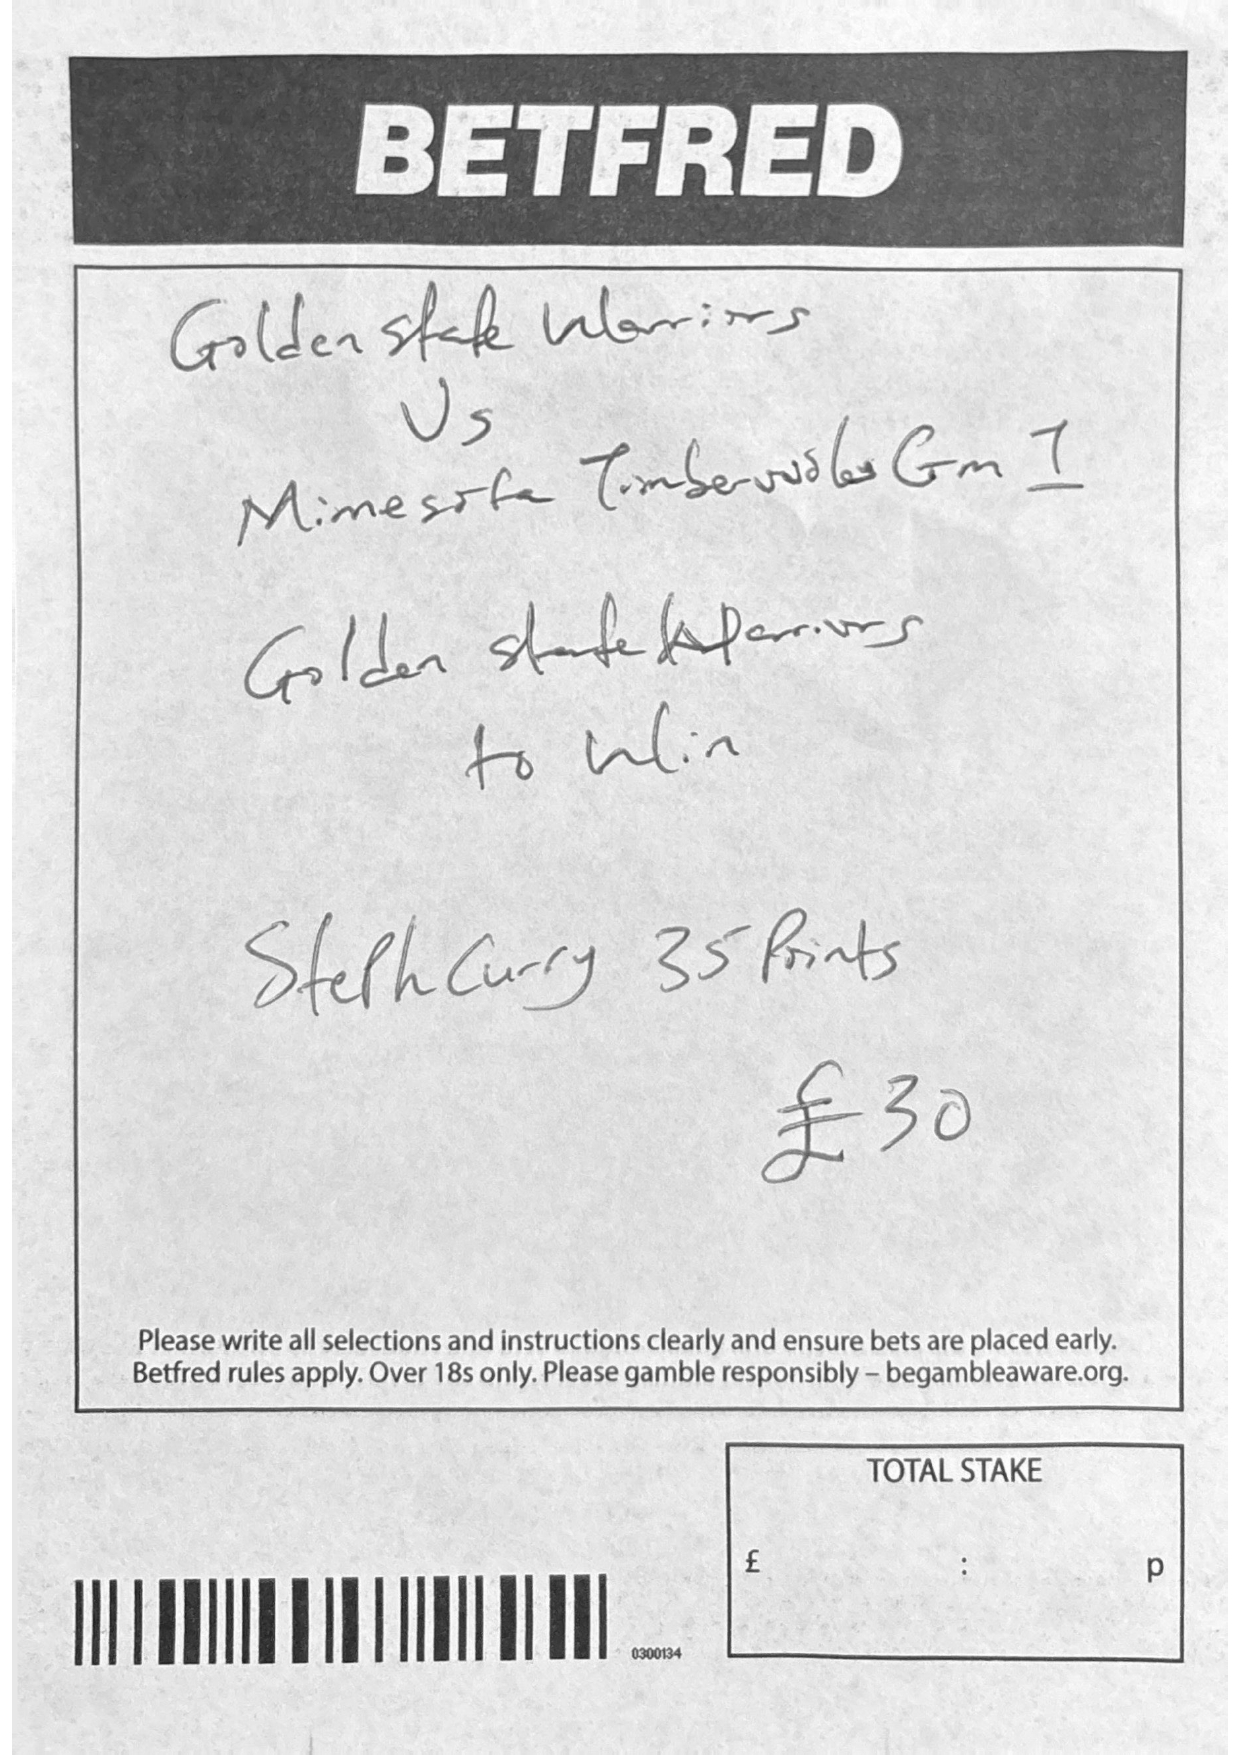 BETFRED
Golden state Warriors
Vs
Minnesota Timberwolves Gm 1
Golden state Warriors
to Win
Steph Curry 35 Points
£30
Please write all selections and instructions clearly and ensure bets are placed early.
Betfred rules apply. Over 18s only. Please gamble responsibly – begambleaware.org.
TOTAL STAKE
£ : p
0300134